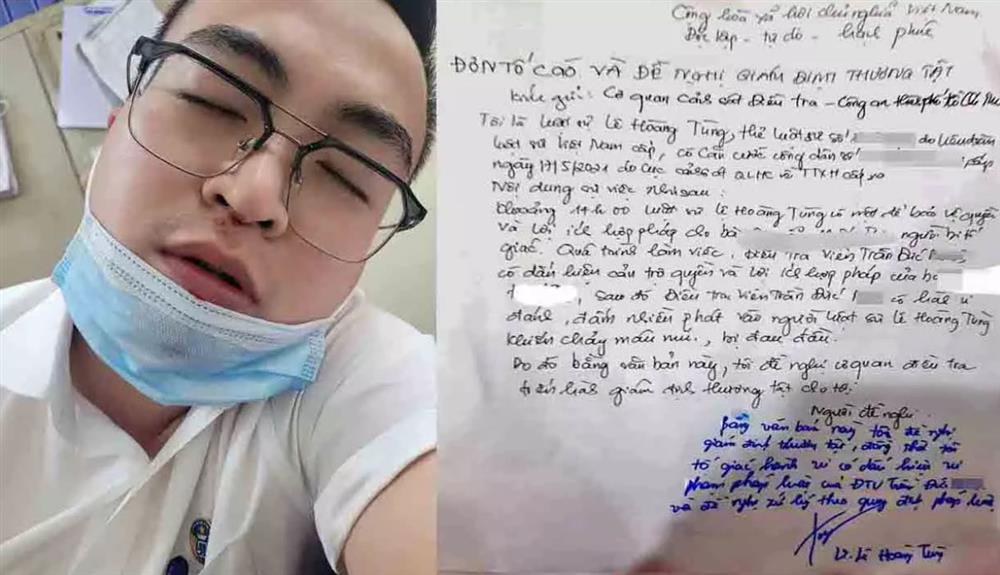 Cộng hòa xã hội chủ nghĩa Việt Nam
Độc lập - tự do - hạnh phúc
ĐƠN TỐ CÁO VÀ ĐỀ NGHỊ GIÁM ĐỊNH THƯƠNG TẬT
Kính gửi: Cơ quan Cảnh sát Điều tra - Công an thành phố Hồ Chí
Tôi là luật sư Lê Hoàng Tùng, thẻ luật sư số do Liên đoàn
luật sư Việt Nam cấp, có Căn cước công dân số cấp
ngày 17/5/2021 do Cục cảnh sát QLHC về TTXH cấp
Nội dung sự việc như sau:
khoảng 14h00 luật sư Lê Hoàng Tùng có mặt để bảo vệ quyền
và lợi ích hợp pháp cho bà người bị tố
giác. Quá trình làm việc, Điều tra Viên Trần Đức
có dấu hiệu cản trở quyền và lợi ích hợp pháp của bà
, sau đó Điều tra viên Trần Đức có hành vi
đánh, đấm nhiều phát vào người luật sư Lê Hoàng Tùng
khiến chảy máu mũi, bị đau đầu.
Do đó bằng văn bản này, tôi đề nghị cơ quan điều tra
tiến hành giám định thương tật cho tôi.
Người đề nghị
Bằng văn bản này tôi đề nghị
giám định thương tật, đồng thời tôi
tố giác hành vi có dấu hiệu vi
phạm pháp luật của ĐTV Trần Đức
và đề nghị xử lý theo quy định pháp luật
Ls. Lê Hoàng Tùng